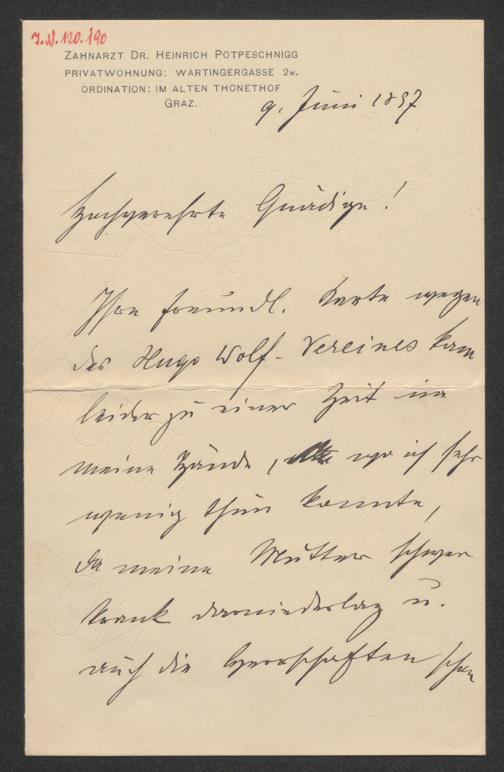 I.N. 120.190
ZAHNARZT DR. HEINRICH POTPESCHNIGG
PRIVATWOHNUNG: WARTINGERGASSE 2
ORDINATION: IM ALTEN THONETHOF
GRAZ.
9. Juni 1897
Hochverehrte Gnädige!
Ihre freundl. Karte wegen
des Hugo Wolf-Vereines kam
leider zu einer Zeit in
meine Hände, wo ich sehr
wenig thun konnte,
da meine Mutter schwer
krank darniederlag u.
auch die Herrschaften schon